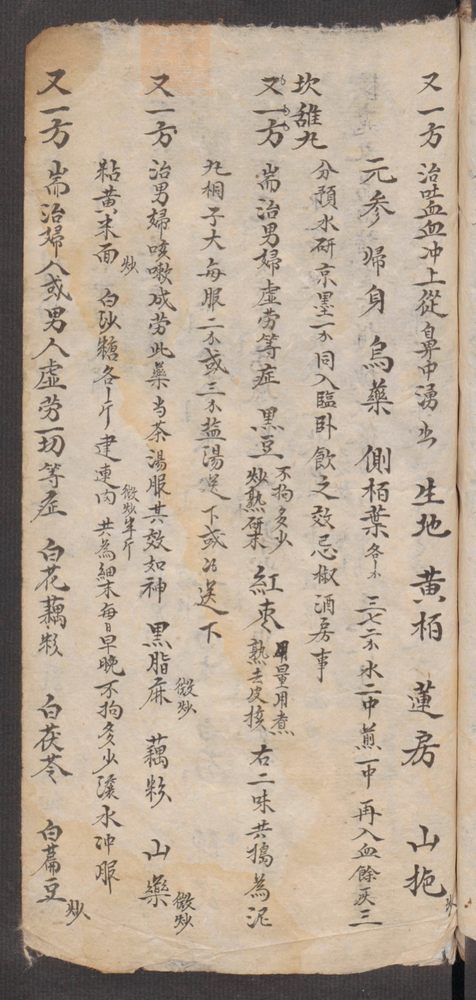 又一方 治吐血血冲上從鼻中湧出 生地 黄栢 蓮房 山栀炒
元参 歸身 烏藥 側栢葉各 三七二 水二中煎一中 再入血餘灰三
分預水研京墨一 同入臨卧飲之效忌椒酒房事
坎離丸
又一方 耑治男婦虛劳等症 黑豆不拘多少炒熟研末 紅枣量用煮熟去皮核 右二味共搗為泥
丸桐子大每服二 或三 盐湯送下或 送下
又一方 治男婦咳嗽成劳此藥当茶湯服其效如神 黑脂麻微炒 藕粉 山藥微炒
粘黄米面炒 白砂糖各 斤建連肉微炒半斤 共為細末每日早晚不拘多少滚水冲服
又一方 耑治婦人或男人虛劳一切等症 白花藕粉 白茯苓 白萹豆炒